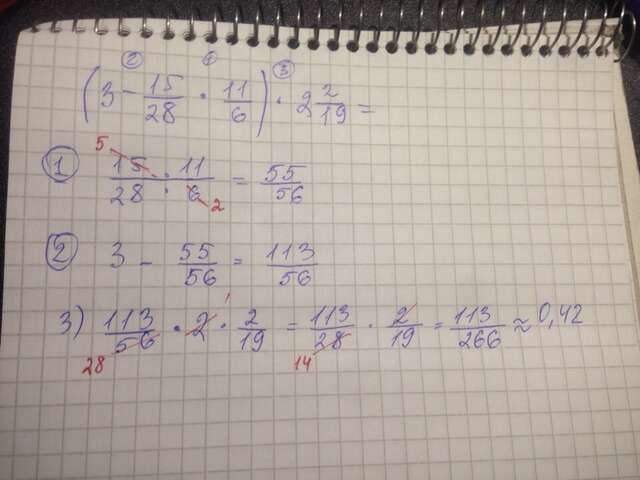 ② ① ③
(3 - 15/28 · 11/6) · 2 2/19 =
① 5 15/28 · 11/6 2 = 55/56
② 3 - 55/56 = 113/56
3) 113/56 · 2 · 2/19 = 113/28 · 2/19 = 113/266 ≈ 0,42
28 1 14